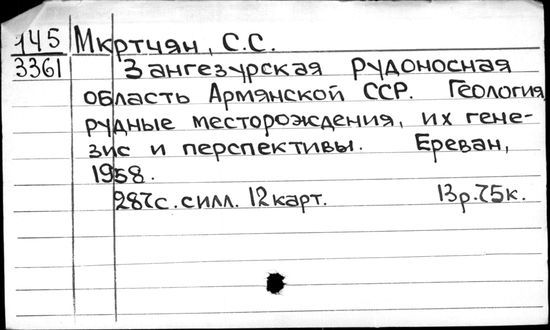 145 Мкртчян, С.С.
3361 Зангезурская рудоносная
область Армянской ССР. Геология,
рудные месторождения, их гене-
зис и перспективы. Ереван,
1958.
287с. с илл. 12 карт. 13р. 75к.